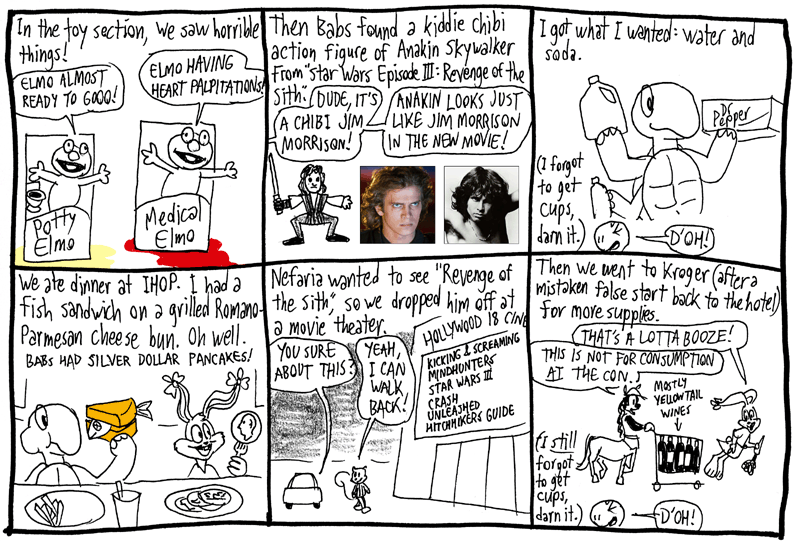 In the toy section, we saw horrible
things!
ELMO ALMOST
READY TO GOOO!
ELMO HAVING
HEART PALPITATIONS!
Potty
Elmo
Medical
Elmo
Then Babs found a kiddie chibi
action figure of Anakin Skywalker
from "Star Wars Episode III: Revenge of the
Sith."
DUDE, IT'S
A CHIBI JIM
MORRISON!
ANAKIN LOOKS JUST
LIKE JIM MORRISON
IN THE NEW MOVIE!
I got what I wanted: water and
soda.
Dr
Pepper
(I forgot
to get
cups,
darn it.)
D'OH!
We ate dinner at IHOP. I had a
fish sandwich on a grilled Romano-
Parmesan cheese bun. Oh well.
BABS HAD SILVER DOLLAR PANCAKES!
Nefaria wanted to see "Revenge of
the Sith," so we dropped him off at
a movie theater.
YOU SURE
ABOUT THIS?
YEAH,
I CAN
WALK
BACK!
HOLLYWOOD 18 CINE
KICKING & SCREAMING
MINDHUNTERS
STAR WARS III
CRASH
UNLEASHED
HITCHHIKERS GUIDE
Then we went to Kroger (after a
mistaken false start back to the hotel)
for more supplies.
THAT'S A LOTTA BOOZE!
THIS IS NOT FOR CONSUMPTION
AT THE CON.
MOSTLY
YELLOWTAIL
WINES
(I still
forgot
to get
cups,
darn it.)
D'OH!